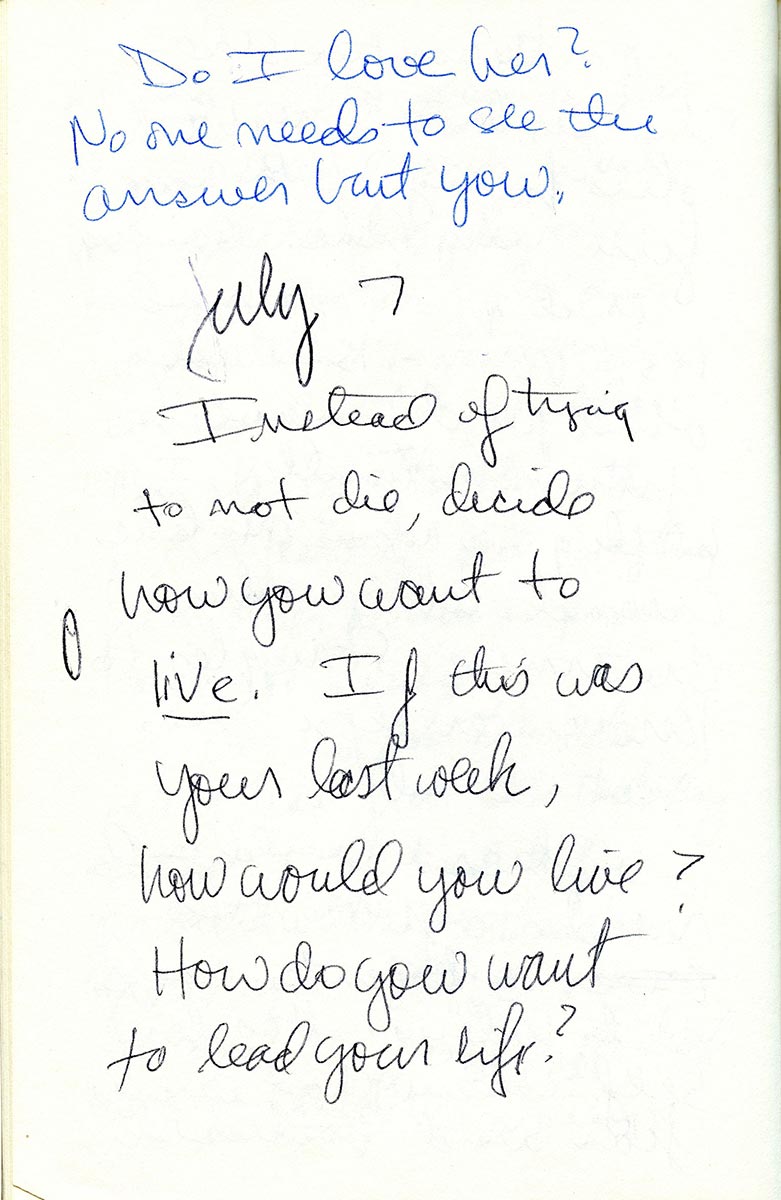 Do I love her?
No one needs to see the
answer but you.
July 7
Instead of trying
to not die, decide
how you want to
live. If this was
your last week,
how would you live?
How do you want
to lead your life?